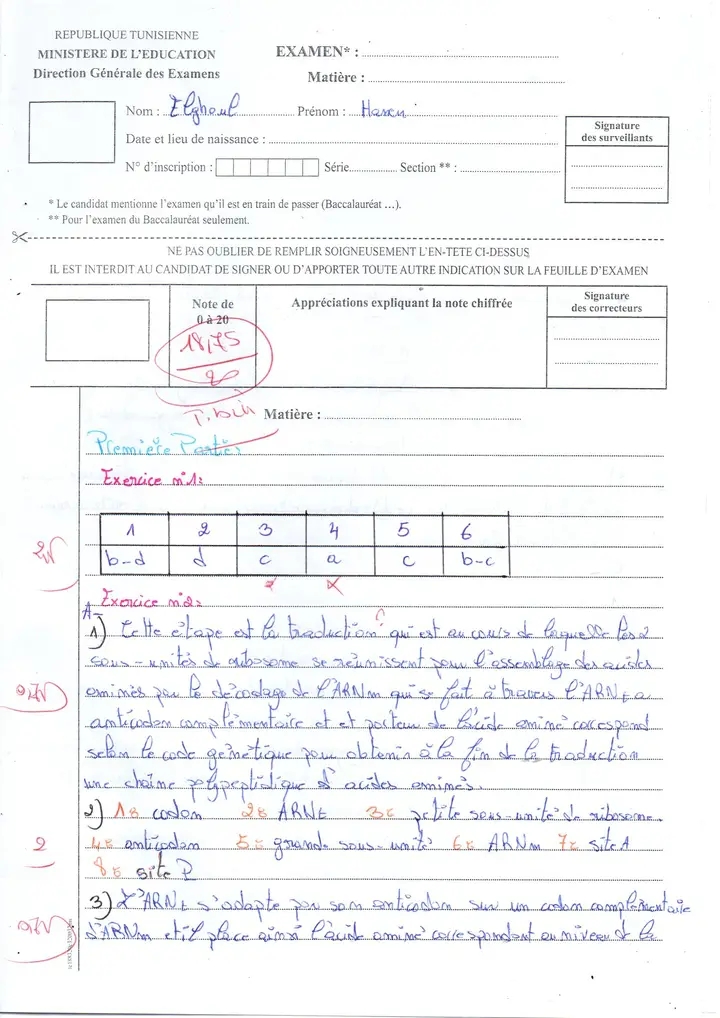 REPUBLIQUE TUNISIENNE
MINISTERE DE L'EDUCATION
Direction Générale des Examens
EXAMEN* :
Matière :
Nom : Elghoul Prénom :
Date et lieu de naissance :
N° d'inscription : Série Section ** :
Signature
des surveillants
* Le candidat mentionne l'examen qu'il est en train de passer (Baccalauréat ...).
** Pour l'examen du Baccalauréat seulement.
NE PAS OUBLIER DE REMPLIR SOIGNEUSEMENT L'EN-TETE CI-DESSUS
IL EST INTERDIT AU CANDIDAT DE SIGNER OU D'APPORTER TOUTE AUTRE INDICATION SUR LA FEUILLE D'EXAMEN
Note de
0 à 20
Appréciations expliquant la note chiffrée
Signature
des correcteurs
18,75
20
T. bien
Matière :
Première Partie
Exercice n°1:
1 2 3 4 5 6
b-d d c a c b-c
Exercice n°2:
A-
1) Cette étape est la traduction qui est au cours de laquelle les 2
sous-unités de ribosome se réunissent pour l'assemblage des acides
aminés par le décodage de l'ARNm qui se fait à travers l'ARNt a
anticodon complémentaire et et porteur de l'acide aminé correspond
selon le code génétique pour obtenir à la fin de la traduction
une chaîne polypeptidique d'acides aminés.
2) 1: codon 2: ARNt 3: petite sous-unité de ribosome
4: anticodon 5: grande sous-unité 6: ARNm 7: site A
8: site P
2
3) L'ARNt s'adapte par son anticodon sur un codon complémentaire
d'ARNm et il place ainsi l'acide aminé correspondant au niveau de la